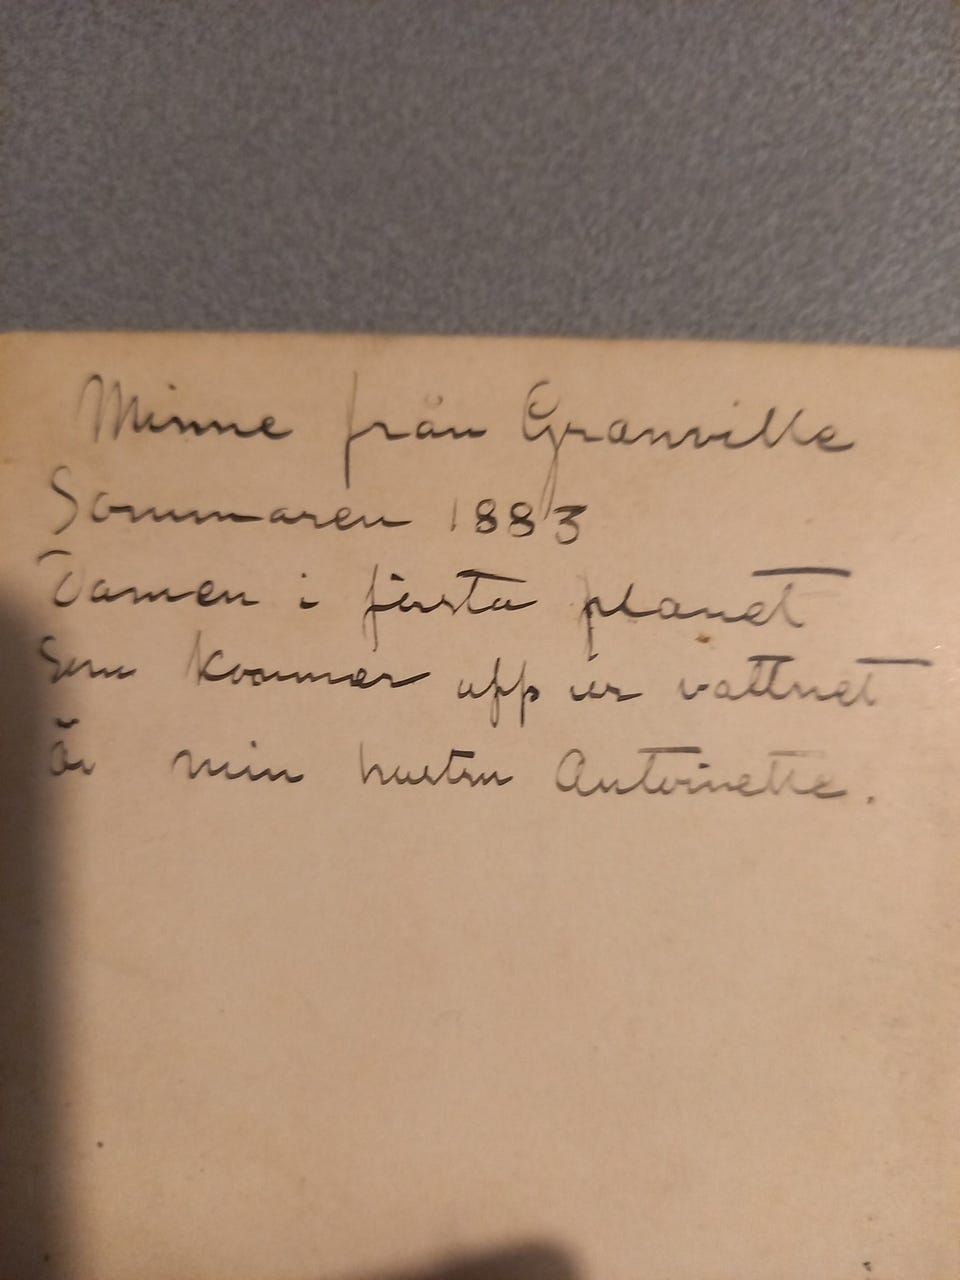 Minne från Granville
Sommaren 1883
Damen i första planet
som kommer upp ur vattnet
är min hustru Antoinette.